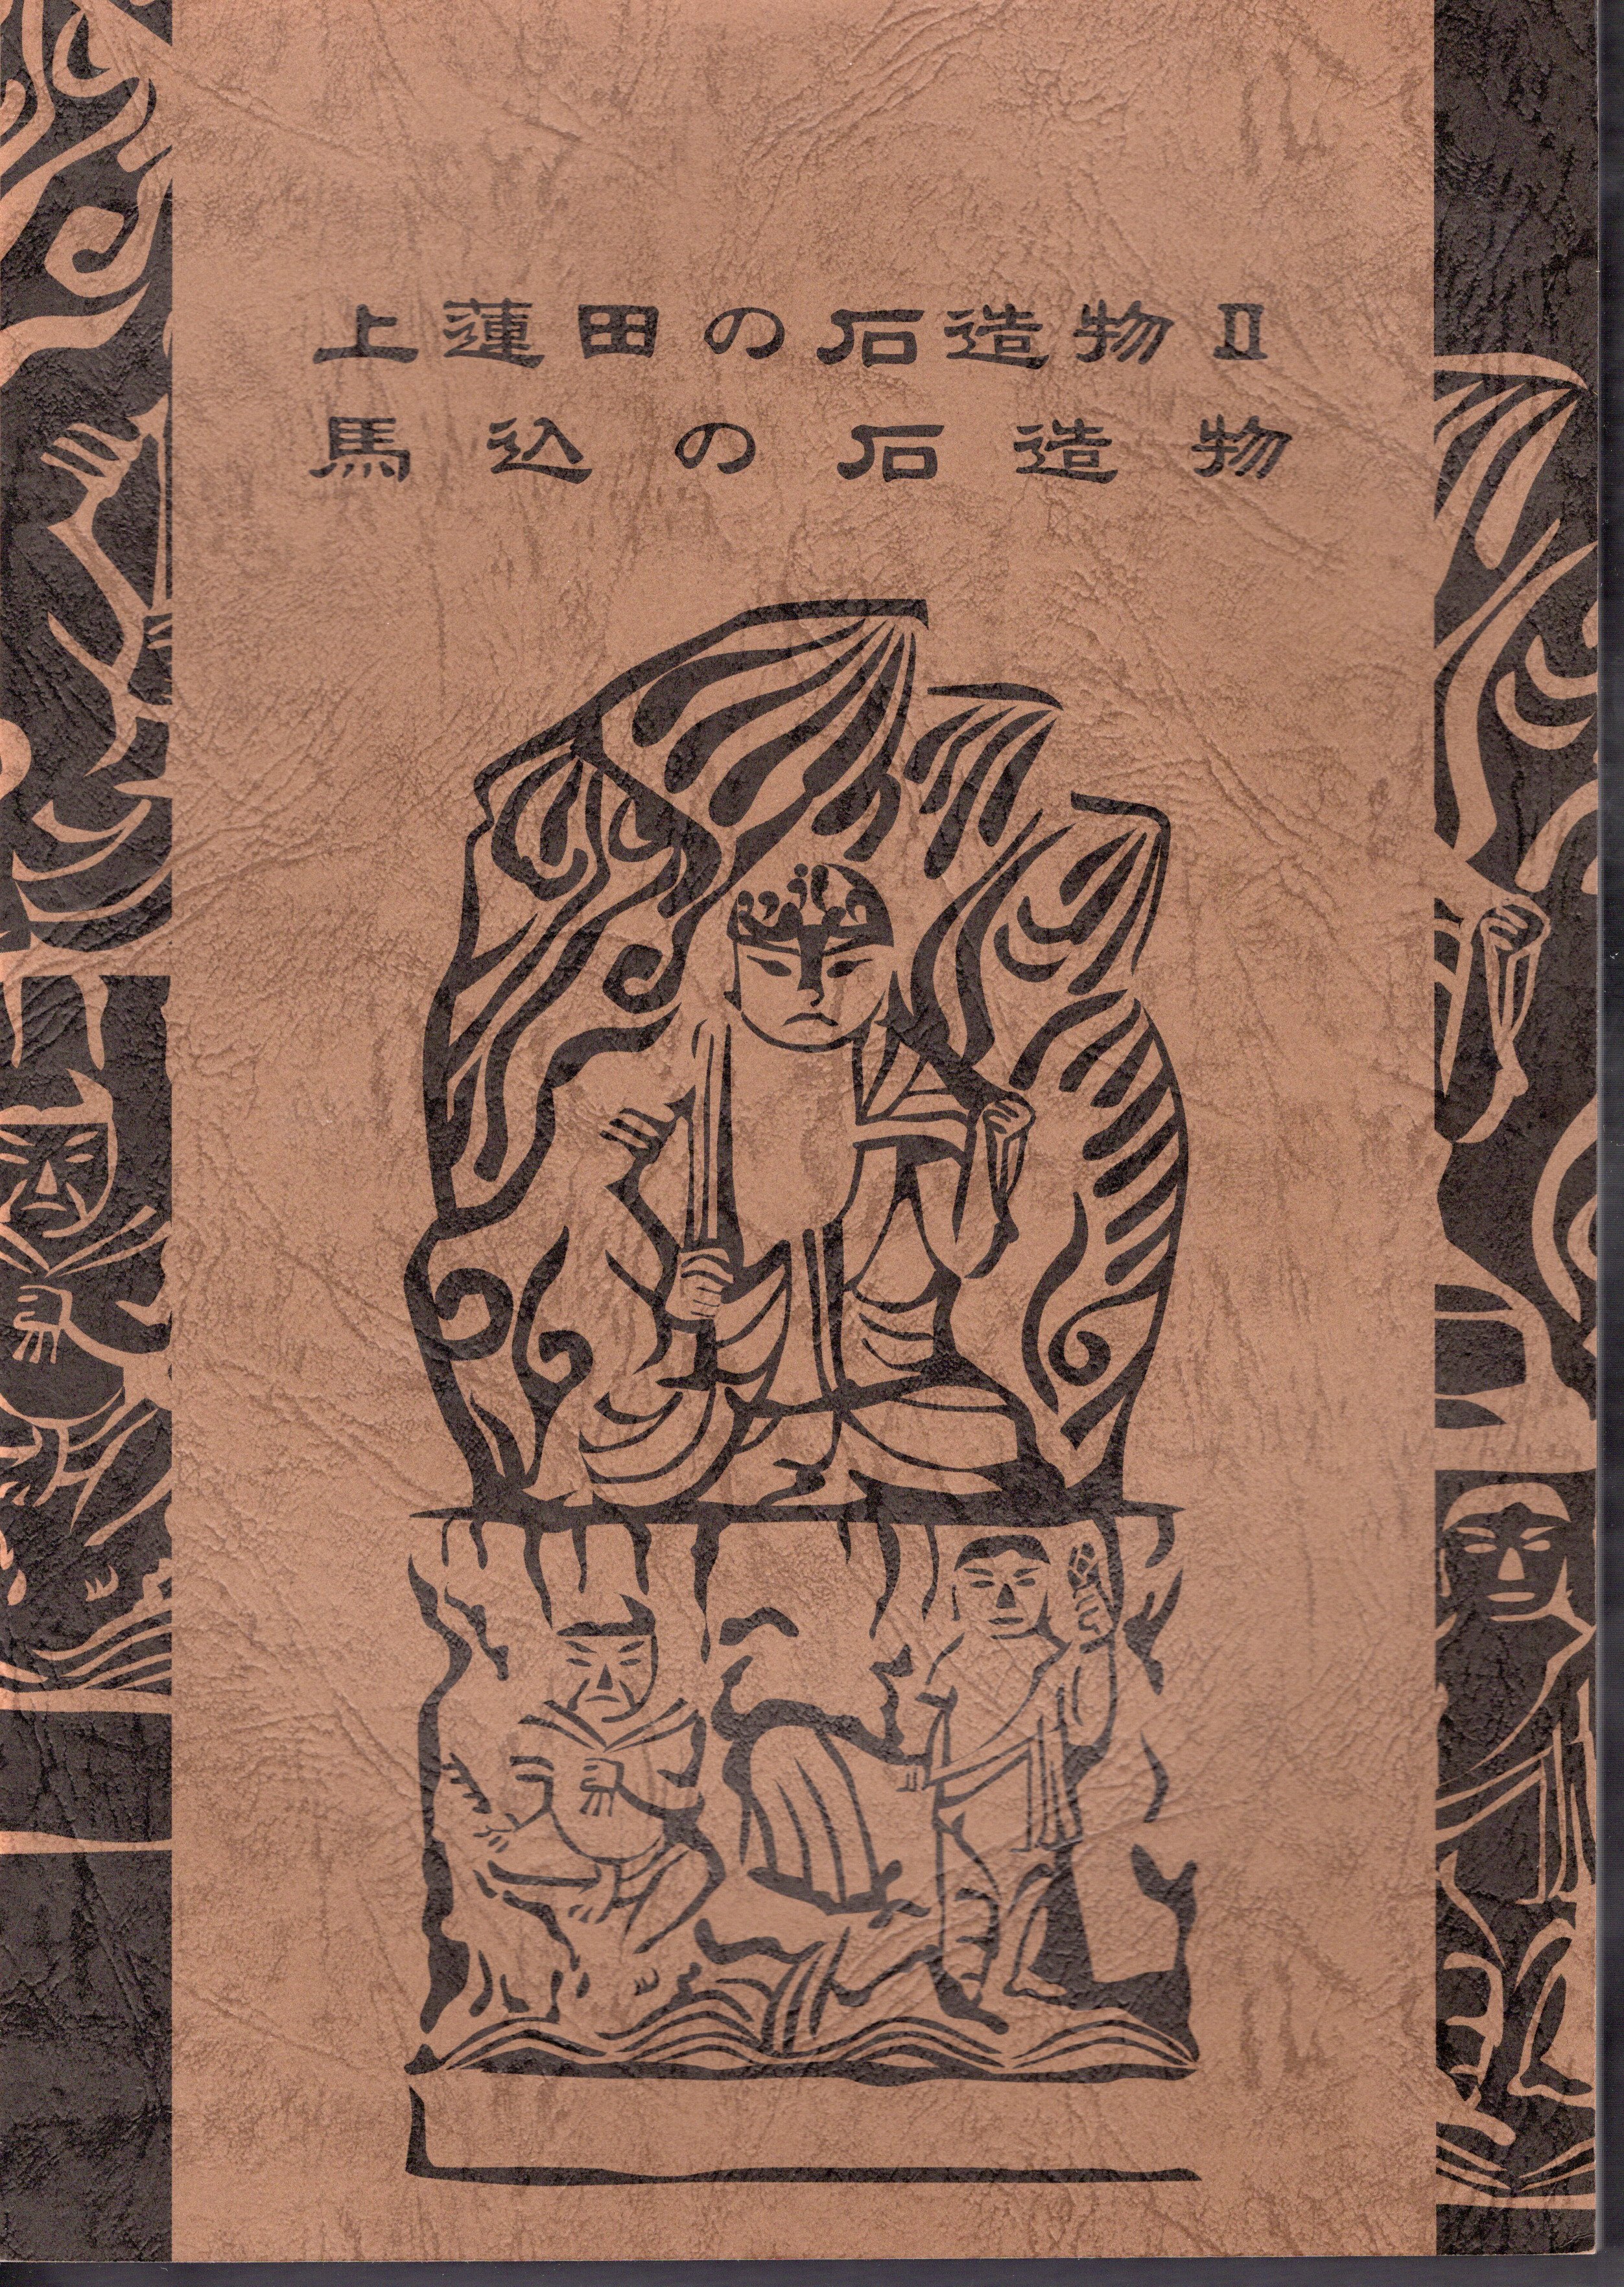 上蓮田の石造物Ⅱ
馬込の石造物